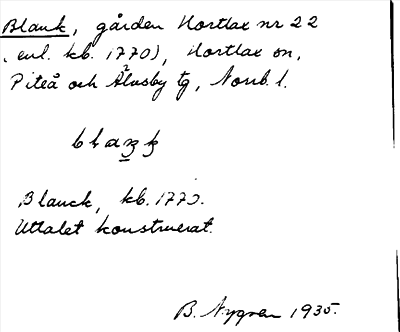 Blank, gården Hortlax nr 22
(enl. kb. 1770), Hortlax sn,
Piteå och Älvsby tg, Norrb. l.
Blanck, kb. 1770.
Uttalet konstruerat.
B. Nygren 1935.